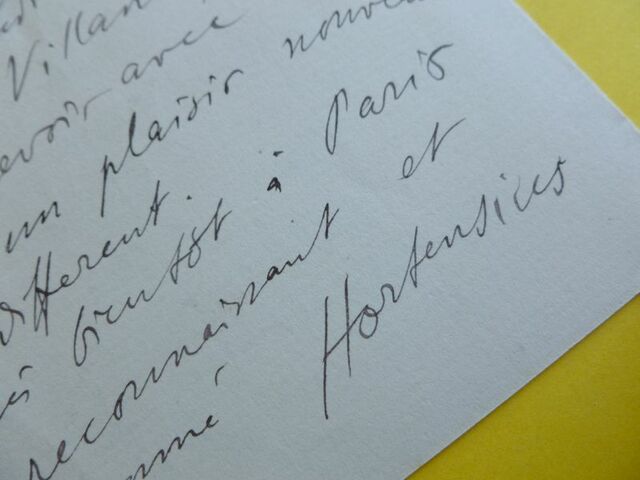 Villar
evoir avec
un plaisir nouvea
différent.
bientôt à Paris
reconnaissant et
mmé Hortensius